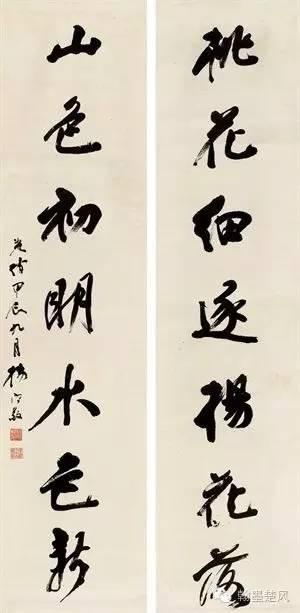 桃花細逐楊花落
山色初明水色新
光緒甲辰九月楊守敬
翰墨楚风